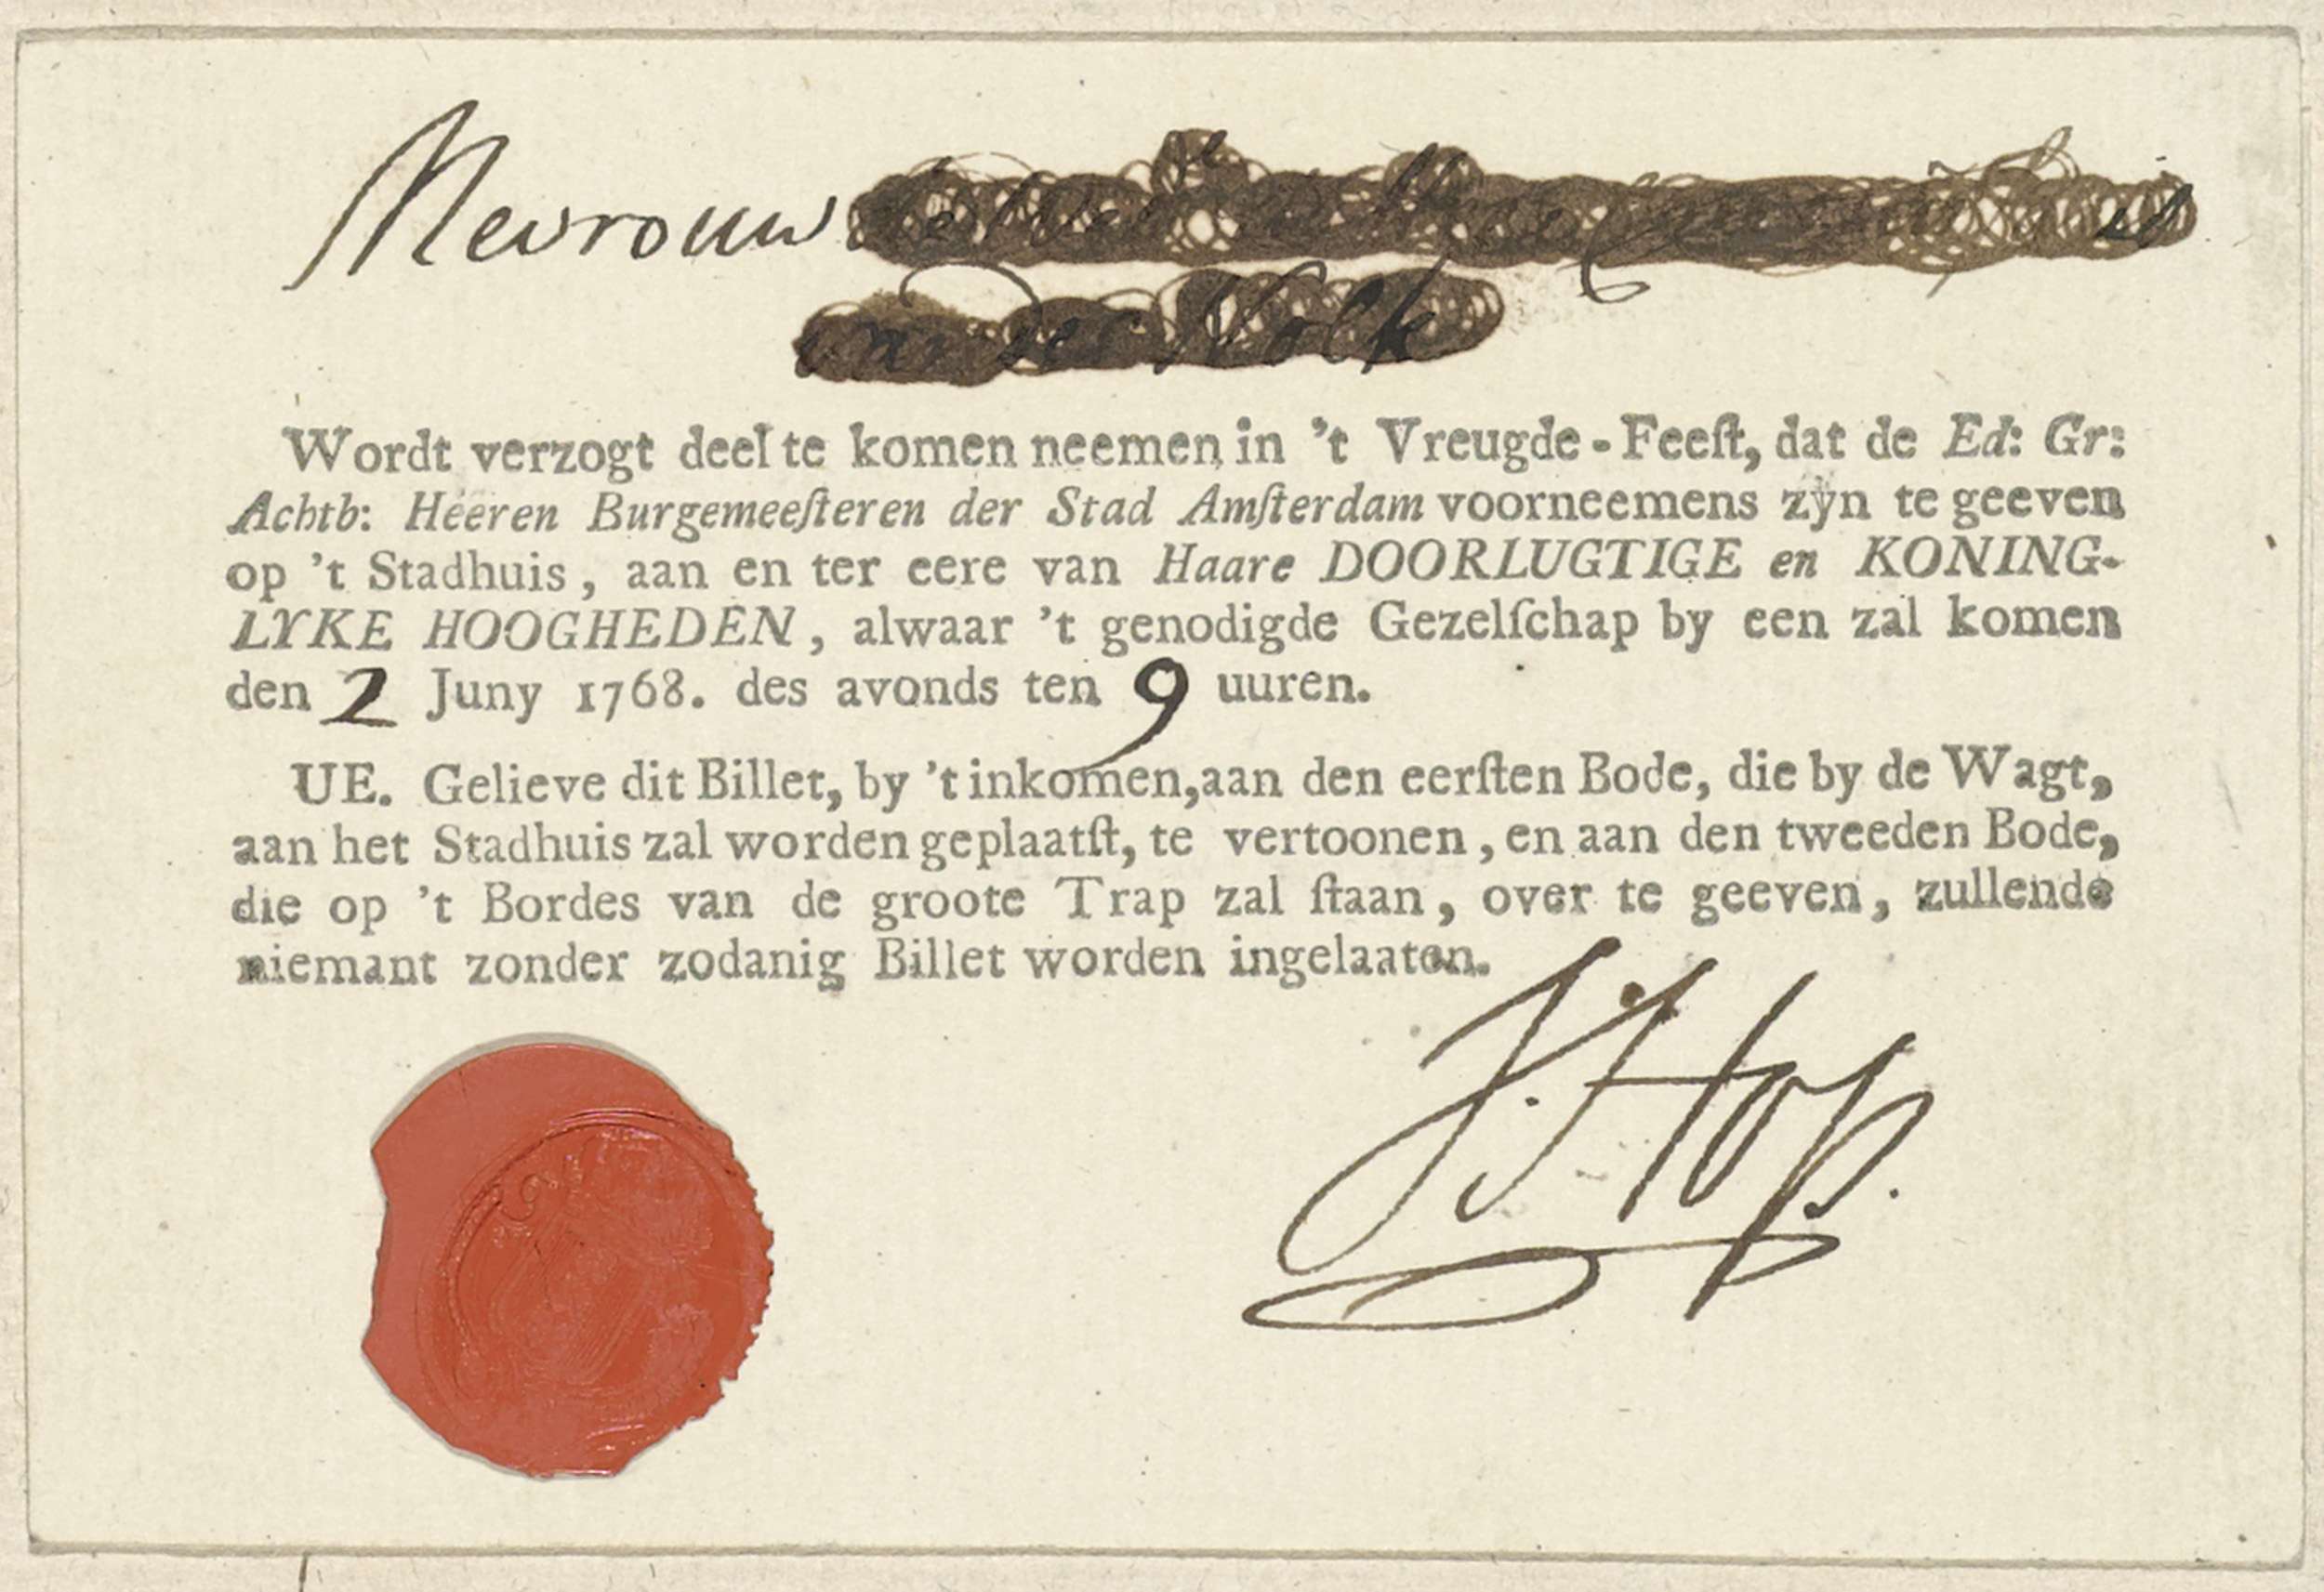 Mevrouw
van der Kolk
Wordt verzogt deel te komen neemen in 't Vreugde-Feeſt, dat de Ed: Gr:
Achtb: Heeren Burgemeeſteren der Stad Amſterdam voorneemens zyn te geeven
op 't Stadhuis, aan en ter eere van Haare DOORLUGTIGE en KONING-
LYKE HOOGHEDEN, alwaar 't genodigde Gezelſchap by een zal komen
den 2 Juny 1768. des avonds ten 9 uuren.
UE. Gelieve dit Billet, by 't inkomen, aan den eerſten Bode, die by de Wagt,
aan het Stadhuis zal worden geplaatſt, te vertoonen, en aan den tweeden Bode,
die op 't Bordes van de groote Trap zal ſtaan, over te geeven, zullende
niemant zonder zodanig Billet worden ingelaaten.
J. Hop.